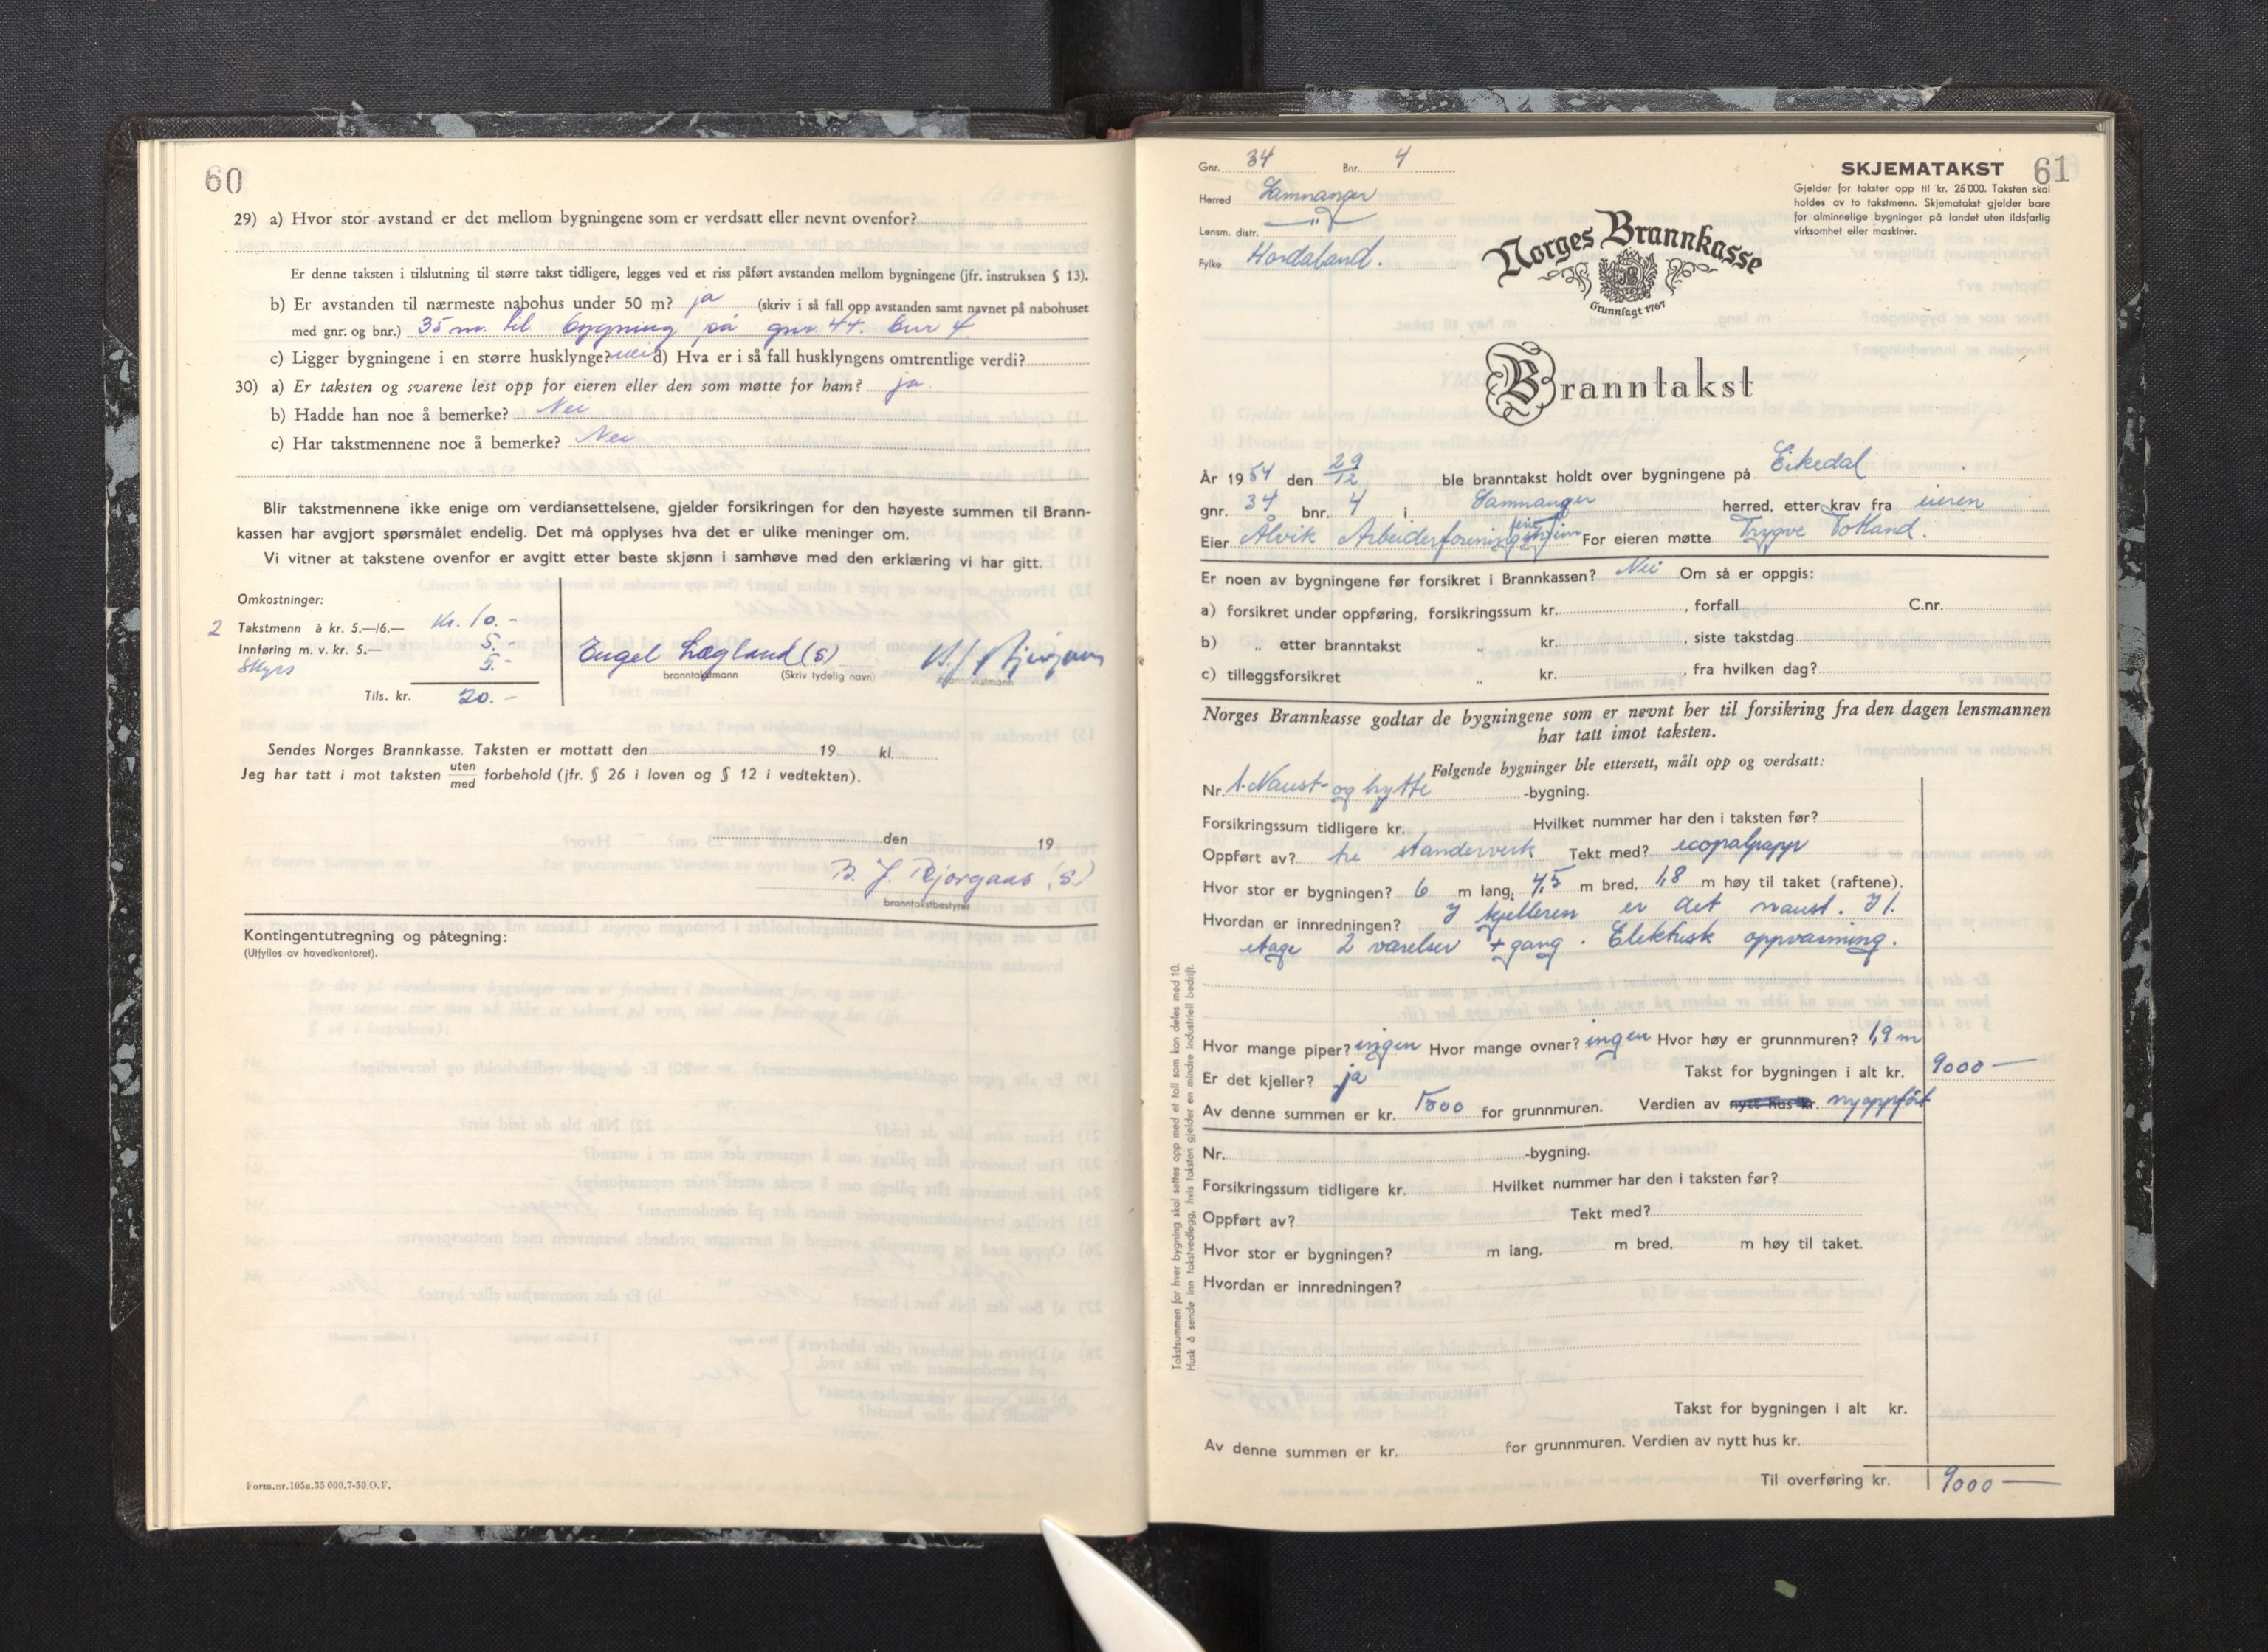 60
29) a) Hvor stor avstand er det mellom bygningene som er verdsatt eller nevnt ovenfor?
Er denne taksten i tilslutning til større takst tidligere, legges ved et riss påført avstanden mellom bygningene (jfr. instruksen § 13).
b) Er avstanden til nærmeste nabohus under 50 m? ja (skriv i så fall opp avstanden samt navnet på nabohuset
med gnr. og bnr.) 35 m. til bygning på gnr. 44. bnr 4
c) Ligger bygningene i en større husklynge? nei d) Hva er i så fall husklyngens omtrentlige verdi?
30) a) Er taksten og svarene lest opp for eieren eller den som møtte for ham? ja
b) Hadde han noe å bemerke? Nei
c) Har takstmennene noe å bemerke? Nei
Blir takstmennene ikke enige om verdiansettelsene, gjelder forsikringen for den høyeste summen til Brann-
kassen har avgjort spørsmålet endelig. Det må opplyses hva det er ulike meninger om.
Vi vitner at takstene ovenfor er avgitt etter beste skjønn i samhøve med den erklæring vi har gitt.
Omkostninger:
2 Takstmenn à kr. 5.—/6.— Kr. 10.-
Innføring m. v. kr. 5.— 5.-
Skyss 5.-
Tils. kr. 20.-
Engel Lægland (s)
branntakstmann (Skriv tydelig navn) branntakstmann
Sendes Norges Brannkasse. Taksten er mottatt den 19 kl.
Jeg har tatt i mot taksten uten med forbehold (jfr. § 26 i loven og § 12 i vedtekten).
den 19
B. J. Bjørgaas (s)
branntakstbestyrer
Kontingentutregning og påtegning:
(Utfylles av hovedkontoret).
Form.nr.105a.35 000.7-50.O.F.
Gnr. 34 Bnr. 4
Herred Samnanger
Lensm. distr. — " —
Fylke Hordaland.
SKJEMATAKST 61
Gjelder for takster opp til kr. 25 000. Taksten skal
holdes av to takstmenn. Skjematakst gjelder bare
for alminnelige bygninger på landet uten ildsfarlig
virksomhet eller maskiner.
Norges Brannkasse
Grunnlagt 1767
Branntakst
År 1954 den 29/12 ble branntakst holdt over bygningene på Eikedal
gnr. 34 bnr. 4 i Samnanger herred, etter krav fra eieren
Eier Ålvik Arbeiderforenings feriehjem For eieren møtte Trygve Totland.
Er noen av bygningene før forsikret i Brannkassen? Nei Om så er oppgis:
a) forsikret under oppføring, forsikringssum kr. , forfall C.nr.
b) „ etter branntakst „ kr. , siste takstdag
c) tilleggsforsikret „ kr. , fra hvilken dag?
Norges Brannkasse godtar de bygningene som er nevnt her til forsikring fra den dagen lensmannen
har tatt imot taksten.
Følgende bygninger ble ettersett, målt opp og verdsatt:
Nr. 1. Naust- og hytte -bygning.
Forsikringssum tidligere kr. Hvilket nummer har den i taksten før?
Oppført av? tre standerverk Tekt med? ecopalpapp
Hvor stor er bygningen? 6 m lang, 4,5 m bred, 1,8 m høy til taket (raftene).
Hvordan er innredningen? I kjelleren er det naust. I 1.
etage 2 varelser + gang. Elektrisk oppvarming.
Hvor mange piper? ingen Hvor mange ovner? ingen Hvor høy er grunnmuren? 1,9 m
Er det kjeller? ja Takst for bygningen i alt kr. 9000 —
Av denne summen er kr. 1500 for grunnmuren. Verdien av nytt hus kr. nyoppført
Nr. -bygning.
Forsikringssum tidligere kr. Hvilket nummer har den i taksten før?
Oppført av? Tekt med?
Hvor stor er bygningen? m lang, m bred, m høy til taket.
Hvordan er innredningen?
Takst for bygningen i alt kr.
Av denne summen er kr. for grunnmuren. Verdien av nytt hus kr.
Til overføring kr. 9000 —
Takstsummen for hver bygning skal settes opp med et tall som kan deles med 10.
Husk å sende inn takstvedlegg, hvis taksten gjelder en mindre industriell bedrift.